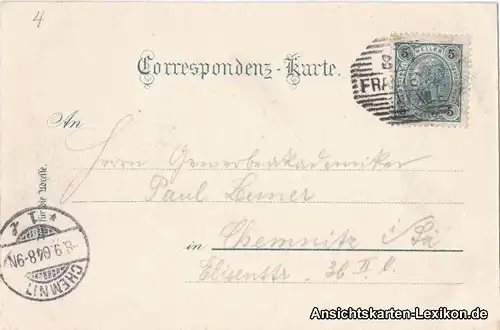 4
Correspondenz-Karte.
5 HELLER 5
FRA
An
Herrn Gewerbeakademiker
Paul
in Chemnitz i/Sa
Elisenstr. 36 II l.
Nur für die Adresse.
CHEMNITZ
* 1 *
8.9.04 8-9N
Ansichtskarten-Lexikon.de